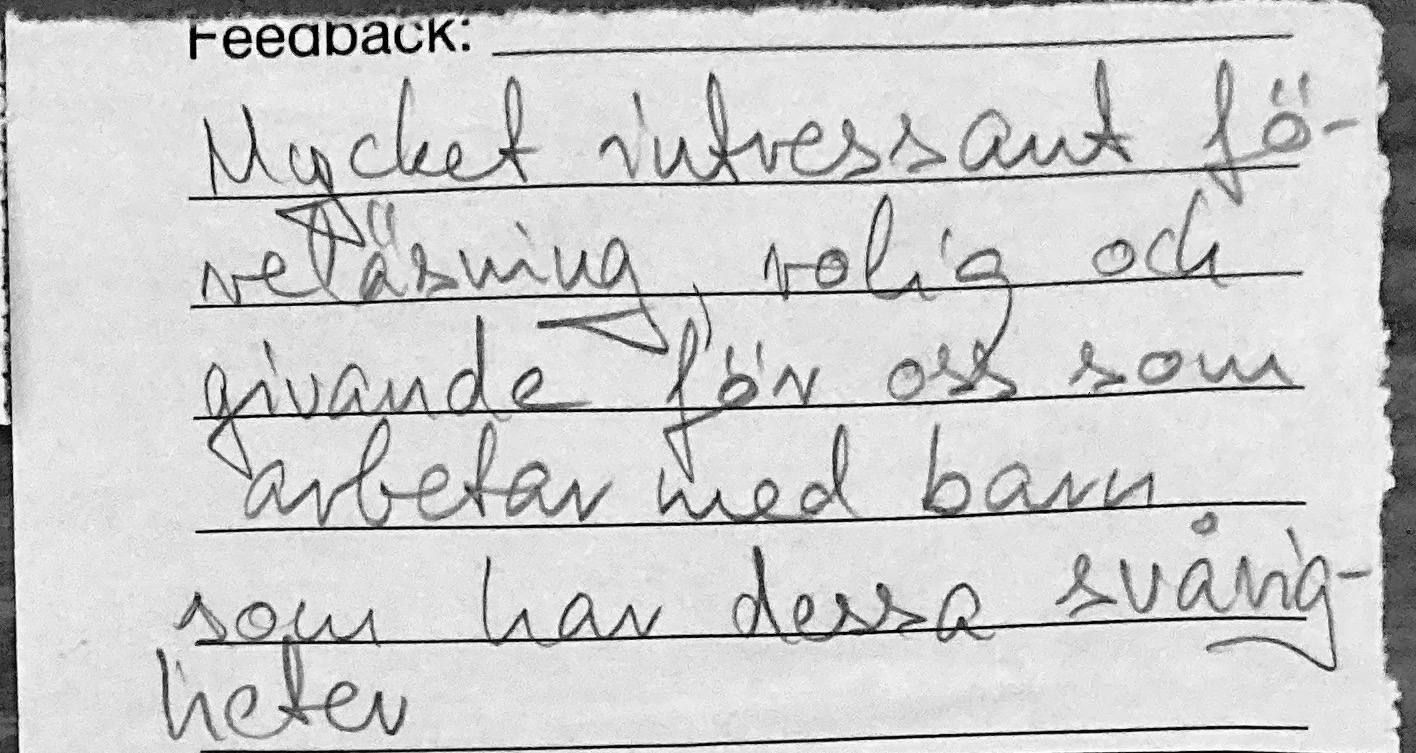 Feedback:
Mycket intressant fö-
reläsning, rolig och
givande för oss som
arbetar med barn
som har dessa svårig-
heter